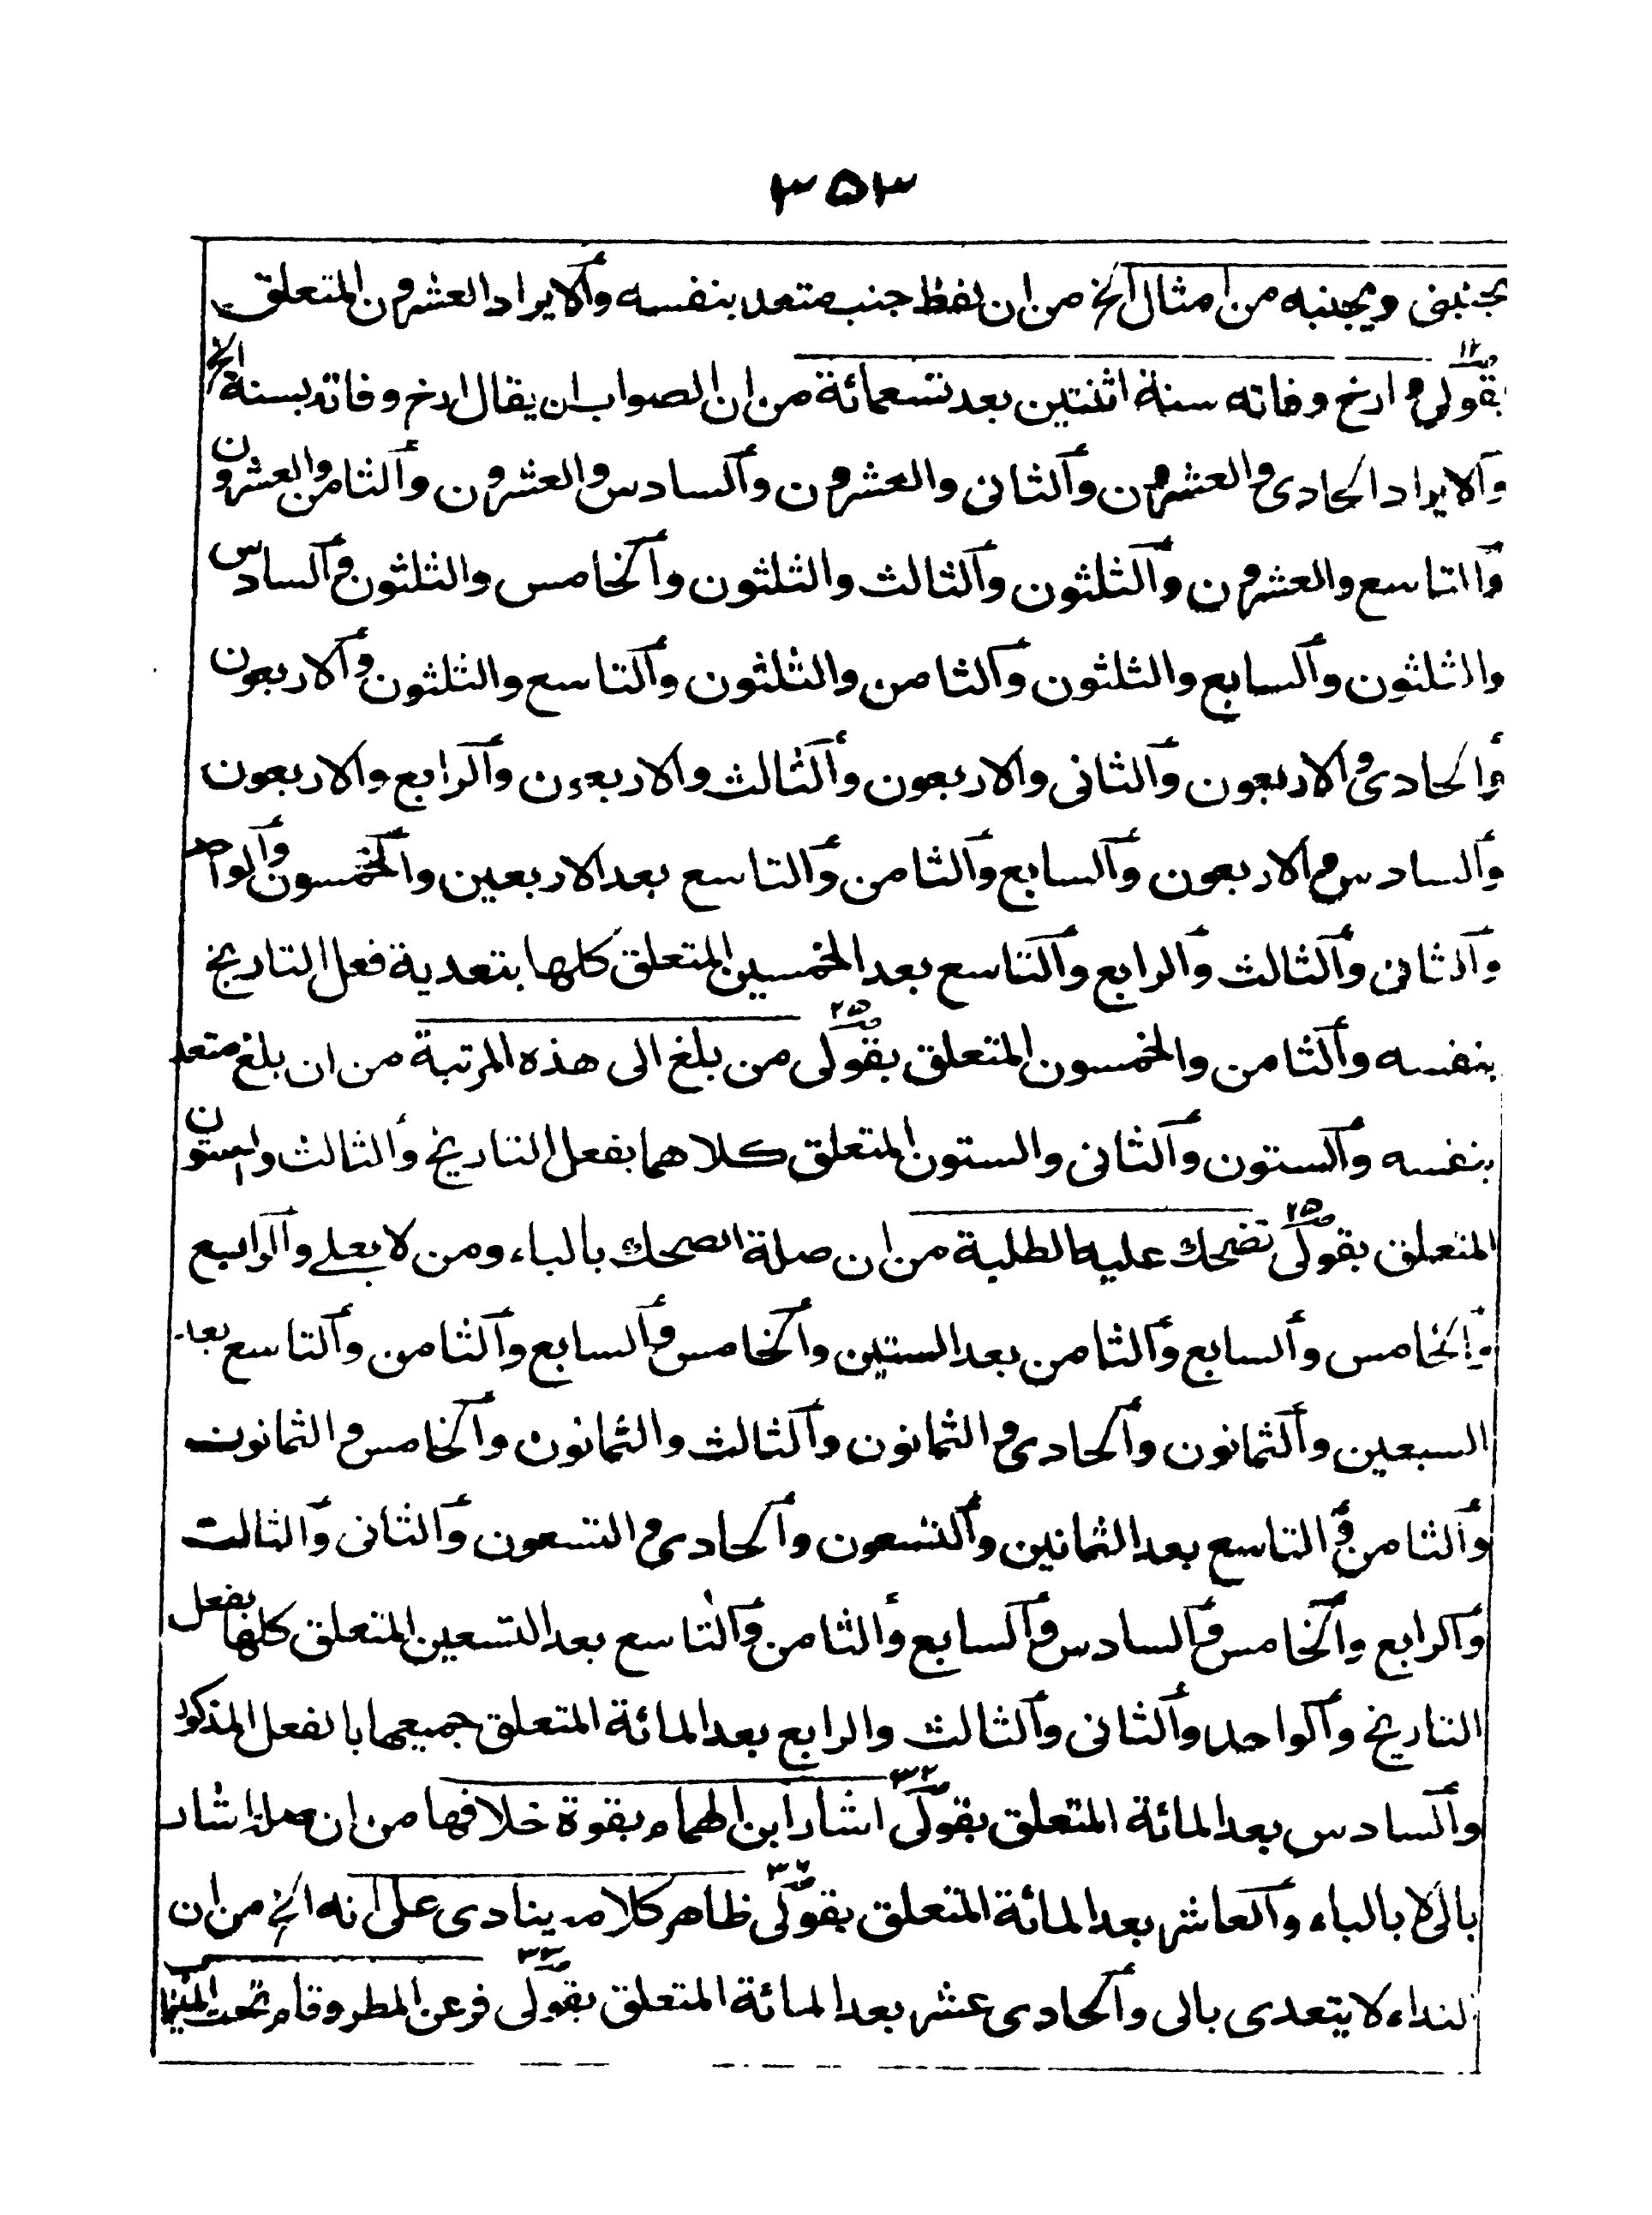 ٣٥٣
يجنبنى ويجنبه من امثال الخ من ان لفظ جنب متعد بنفسه والايراد العشرون المتعلق
بقولى ص١٢ وارخ وفاته سنة اثنتين بعد تسعمائة من ان الصواب ان يقال ارخ وفاته بسنة الخ
والايراد الحادى والعشرون والثانى والعشرون والسادس والعشرون والثامن والعشرون
والتاسع والعشرون والثلثون والثالث والثلثون والخامس والثلثون والسادس
والثلثون والسابع والثلثون والثامن والثلثون والتاسع والثلثون والاربعون
والحادى والاربعون والثانى والاربعون والثالث والاربعون والرابع والاربعون
والسادس والاربعون والسابع والثامن والتاسع بعد الاربعين والخمسون والواحد
والثانى والثالث والرابع والتاسع بعد الخمسين المتعلق كلها بتعدية فعل التاريخ
بنفسه والثامن والخمسون المتعلق بقولى ص٢٥ من بلغ الى هذه المرتبة من ان بلغ متعد
بنفسه والستون والثانى والستون المتعلق كلاهما بفعل التاريخ والثالث والستون
المتعلق بقولى ص٢٥ تضحك عليه الطلبة من ان صلة الضحك بالباء ومن لا بعلے والرابع
والخامس والسابع والثامن بعد الستين والخامس والسابع والثامن والتاسع بعد
السبعين والثمانون والحادى والثمانون والثالث والثمانون والخامس والثمانون
والثامن والتاسع بعد الثمانين والتسعون والحادى والتسعون والثانى والثالث
والرابع والخامس والسادس والسابع والثامن والتاسع بعد التسعين المتعلق كلها بفعل
التاريخ والواحد والثانى والثالث والرابع بعد المائة المتعلق جميعها بالفعل المذكور
والسادس بعد المائة المتعلق بقولى ص٣٢ اشار ابن الهمام بقوة خلافها من ان صلة اشار
بالى لا بالباء والعاشر بعد المائة المتعلق بقولى ظاهر كلامه ينادى على انه الخ من ان
النداء لا يتعدى بالى والحادى عشر بعد المائة المتعلق بقولى فر عن المطر وقام تحت الميزاب